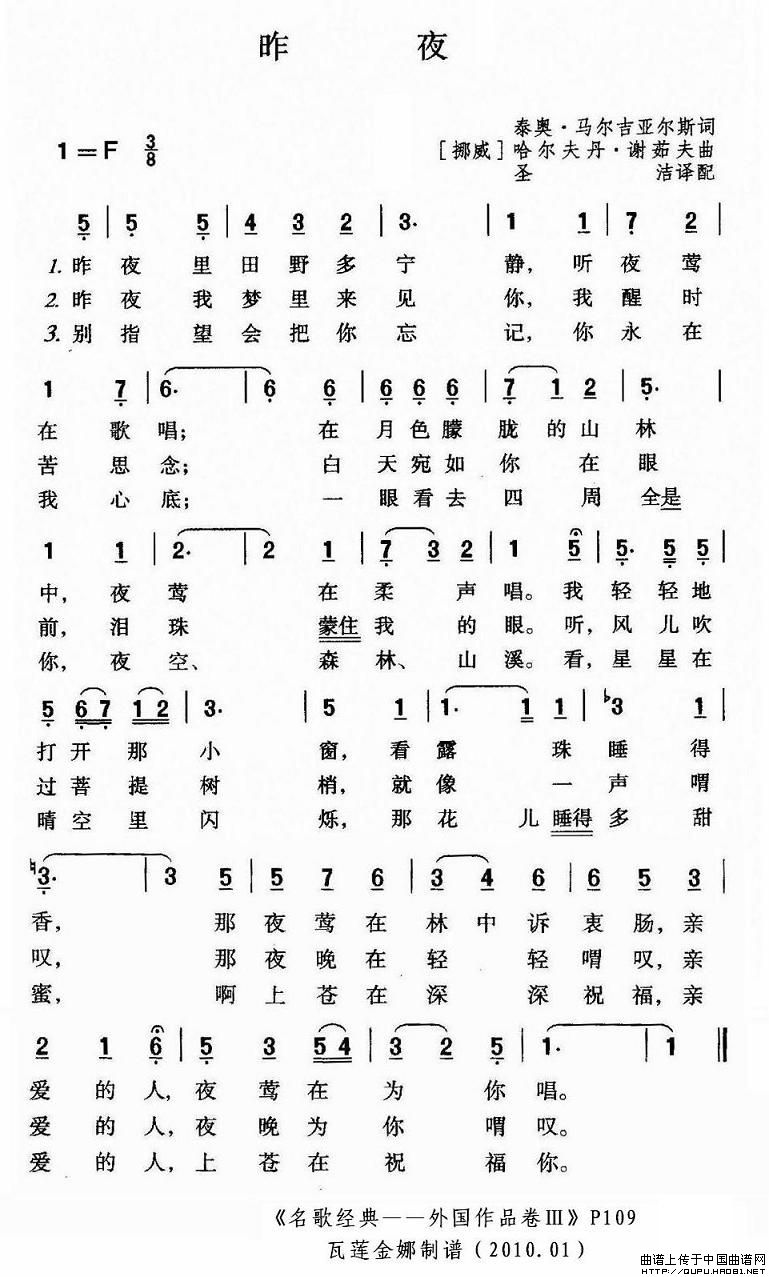 昨 夜
泰奥·马尔吉亚尔斯词
1=F 3/8 [挪威]哈尔夫丹·谢茹夫曲
圣 洁译配
5 5 | 5 4 3 2 | 3· | 1 1 | 7 2
1. 昨夜里田野多宁静，听夜莺
2. 昨夜我梦里来见你，我醒时
3. 别指望会把你忘记，你永在
1 7 | 6· | 6 6 6 6 6 | 7 1 2 | 5·
在歌唱；在月色朦胧的山林
苦思念；白天宛如你在眼
我心底；一眼看去四周全是
1 1 | 2· | 2 1 | 7 3 2 | 1 5 | 5· 5 5
中，夜莺在柔声唱。我轻轻地
前，泪珠蒙住我的眼。听，风儿吹
你，夜空、森林、山溪。看，星星在
5 6 7 1 2 | 3· | 5 1 | 1· 1 1 | ♭3 1
打开那小窗，看露珠睡得
过菩提树梢，就像一声喟
晴空里闪烁，那花儿睡得多甜
♮3· | 3 5 | 5 7 6 | 3 4 6 | 6 5 3
香，那夜莺在林中诉衷肠，亲
叹，那夜晚在轻轻喟叹，亲
蜜，啊上苍在深深祝福，亲
2 1 6 | 5 3 5 4 | 3 2 5 | 1· | 1
爱的人，夜莺在为你唱。
爱的人，夜晚为你喟叹。
爱的人，上苍在祝福你。
《名歌经典——外国作品卷Ⅲ》P109
瓦莲金娜制谱（2010.01）
曲谱上传于中国曲谱网
http://QUPU.HAO81.NET